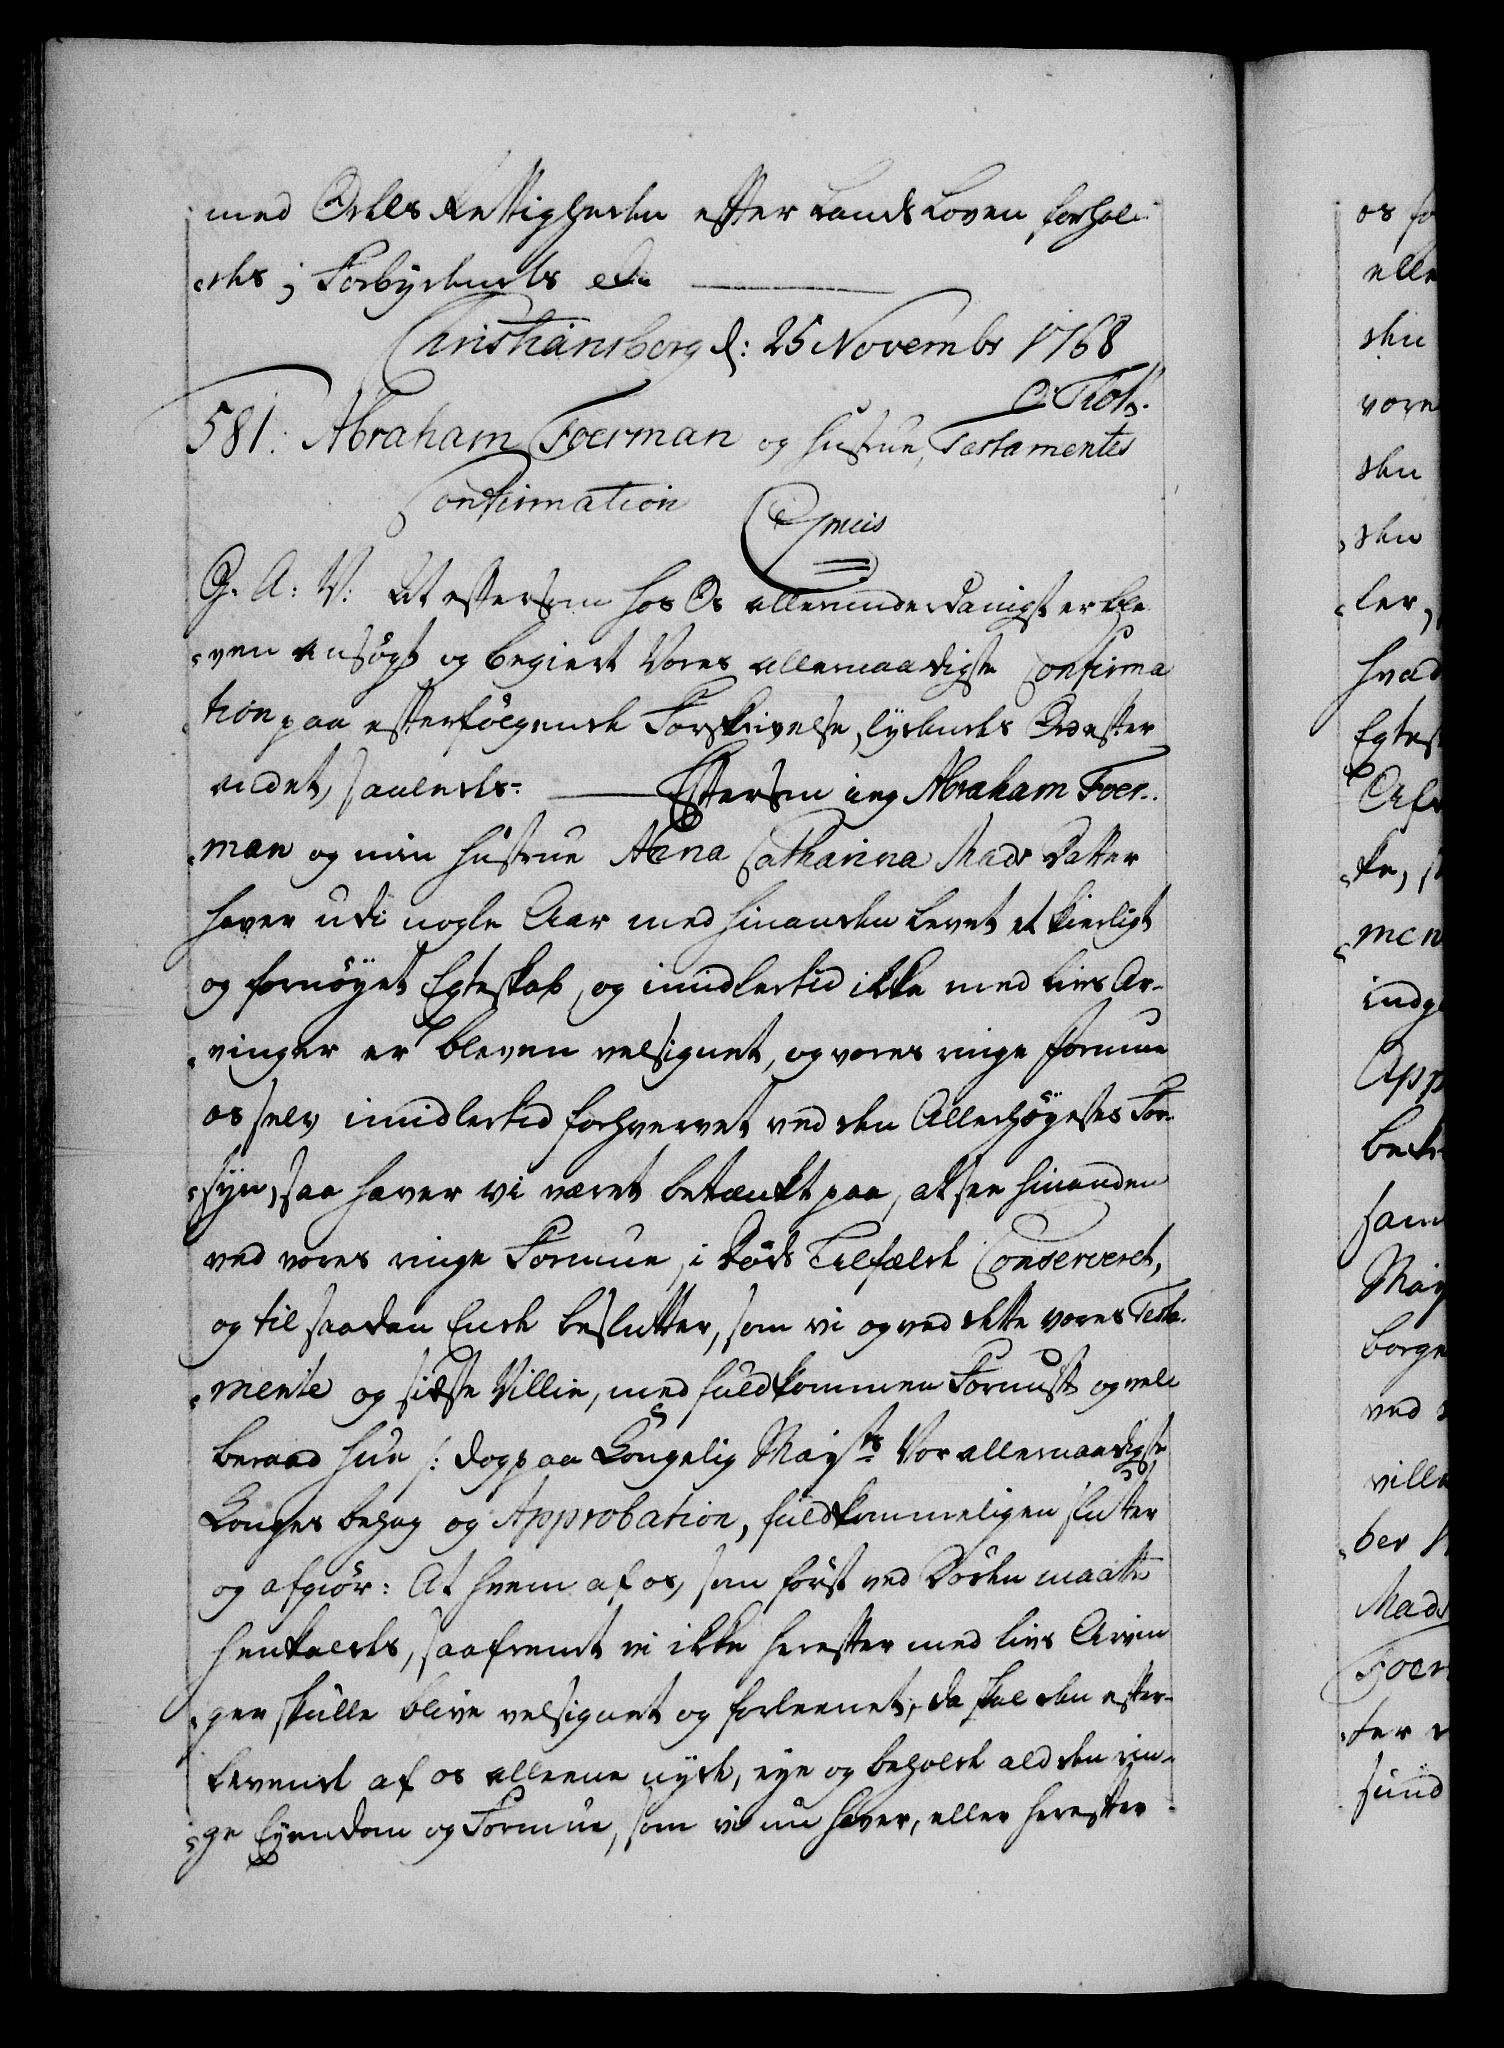 med Odels Rettigheden efter Lands Loven forhol¬
des; Forbydendes etc
Christiansborg d: 25 Novembr 1768
C: Tiot.
581. Abraham Foerman og Hustrue, Testamentes
Confirmation
Gratis
G. A: V: At eftersom hos Os allerunderdanigst er ble
ven ansøgt og begiert Vores allernaadigste Confirma
tion paa efterfølgende Forskrivelse, lydendes Ord efter
andet, saaledes: Eftersom ieg Abraham Foer¬
man og min Hustrue Anna Catharina Mads Datter
haver udi nogle Aar med hinanden levet et kierligt
og fornøyet Egteskab, og imidlertid ikke med livs Ar¬
vinger er bleven velsignet, og vores ringe formue
os selv imidlertid forhvervet ved den Allerhøyestes For¬
syn, saa haver vi været betænkt paa, at see hinanden
ved vores ringe Formue, i Døds Tilfælde Conserveret,
og til saadan Ende beslutter, som vi og ved dette vores Testa¬
mente og sidste Villie, med fuldkommen Fornuft og vel
beraad Hue /: dog paa Kongelig Mayts Vor allernaadigste
Konges behag og Approbation, fuldkommeligen slutter
og afgiør: At hvem af os, som først ved Døden maatte
henkaldes, saafremt vi ikke herefter med livs Arvin
ger skulle blive velsignet og forleenet, da skal den efter¬
levende af os alleene nyde, eye og beholde ald den rin¬
ge Eyendom og Formue, som vi nu haver, eller herefter